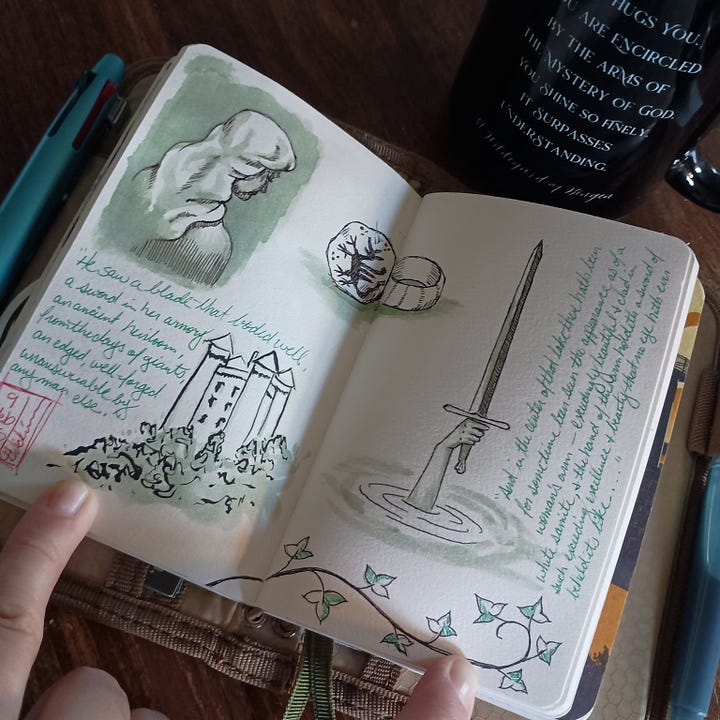 HUGS YOU.
YOU ARE ENCIRCLED
BY THE ARMS OF
THE MYSTERY OF GOD.
YOU SHINE SO FINELY,
IT SURPASSES
UNDERSTANDING.
St Hildegard of Bingen
"He saw a blade that boded well,
a sword in her armory
an ancient heirloom
from the days of giants
an edged, well-forged
by
any man else."
"And in the center of that lake there hath been
for some time been seen the appearance as of a
woman's arm – exceedingly beautiful & clad in
white samite, & the hand of this arm holdeth a sword of
such exceeding excellence & beauty that no eye hath ever
beheld its like...."